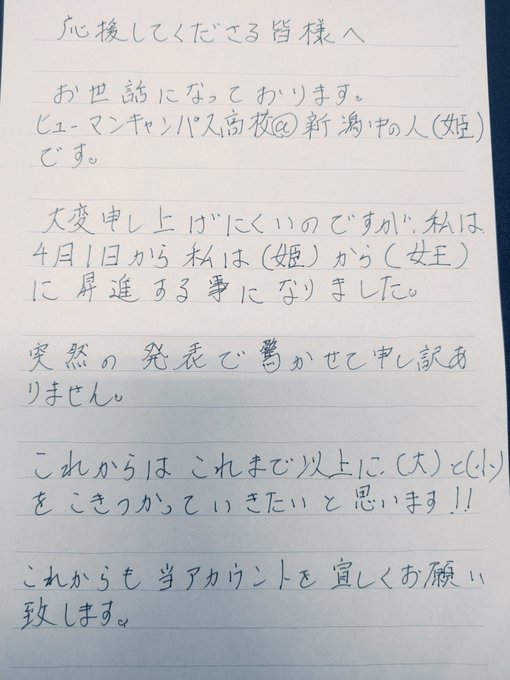 応援してくださる皆様へ
お世話になっております。
ヒューマンキャンパス高校@新潟中の人(姫)
です。
大変申し上げにくいのですが、私は
4月1日から私は(姫)から(女王)
に昇進する事になりました。
突然の発表で驚かせて申し訳あ
りません。
これからはこれまで以上に、(大)と(小)
をこきつかっていきたいと思います!!
これからも当アカウントを宜しくお願い
致します。